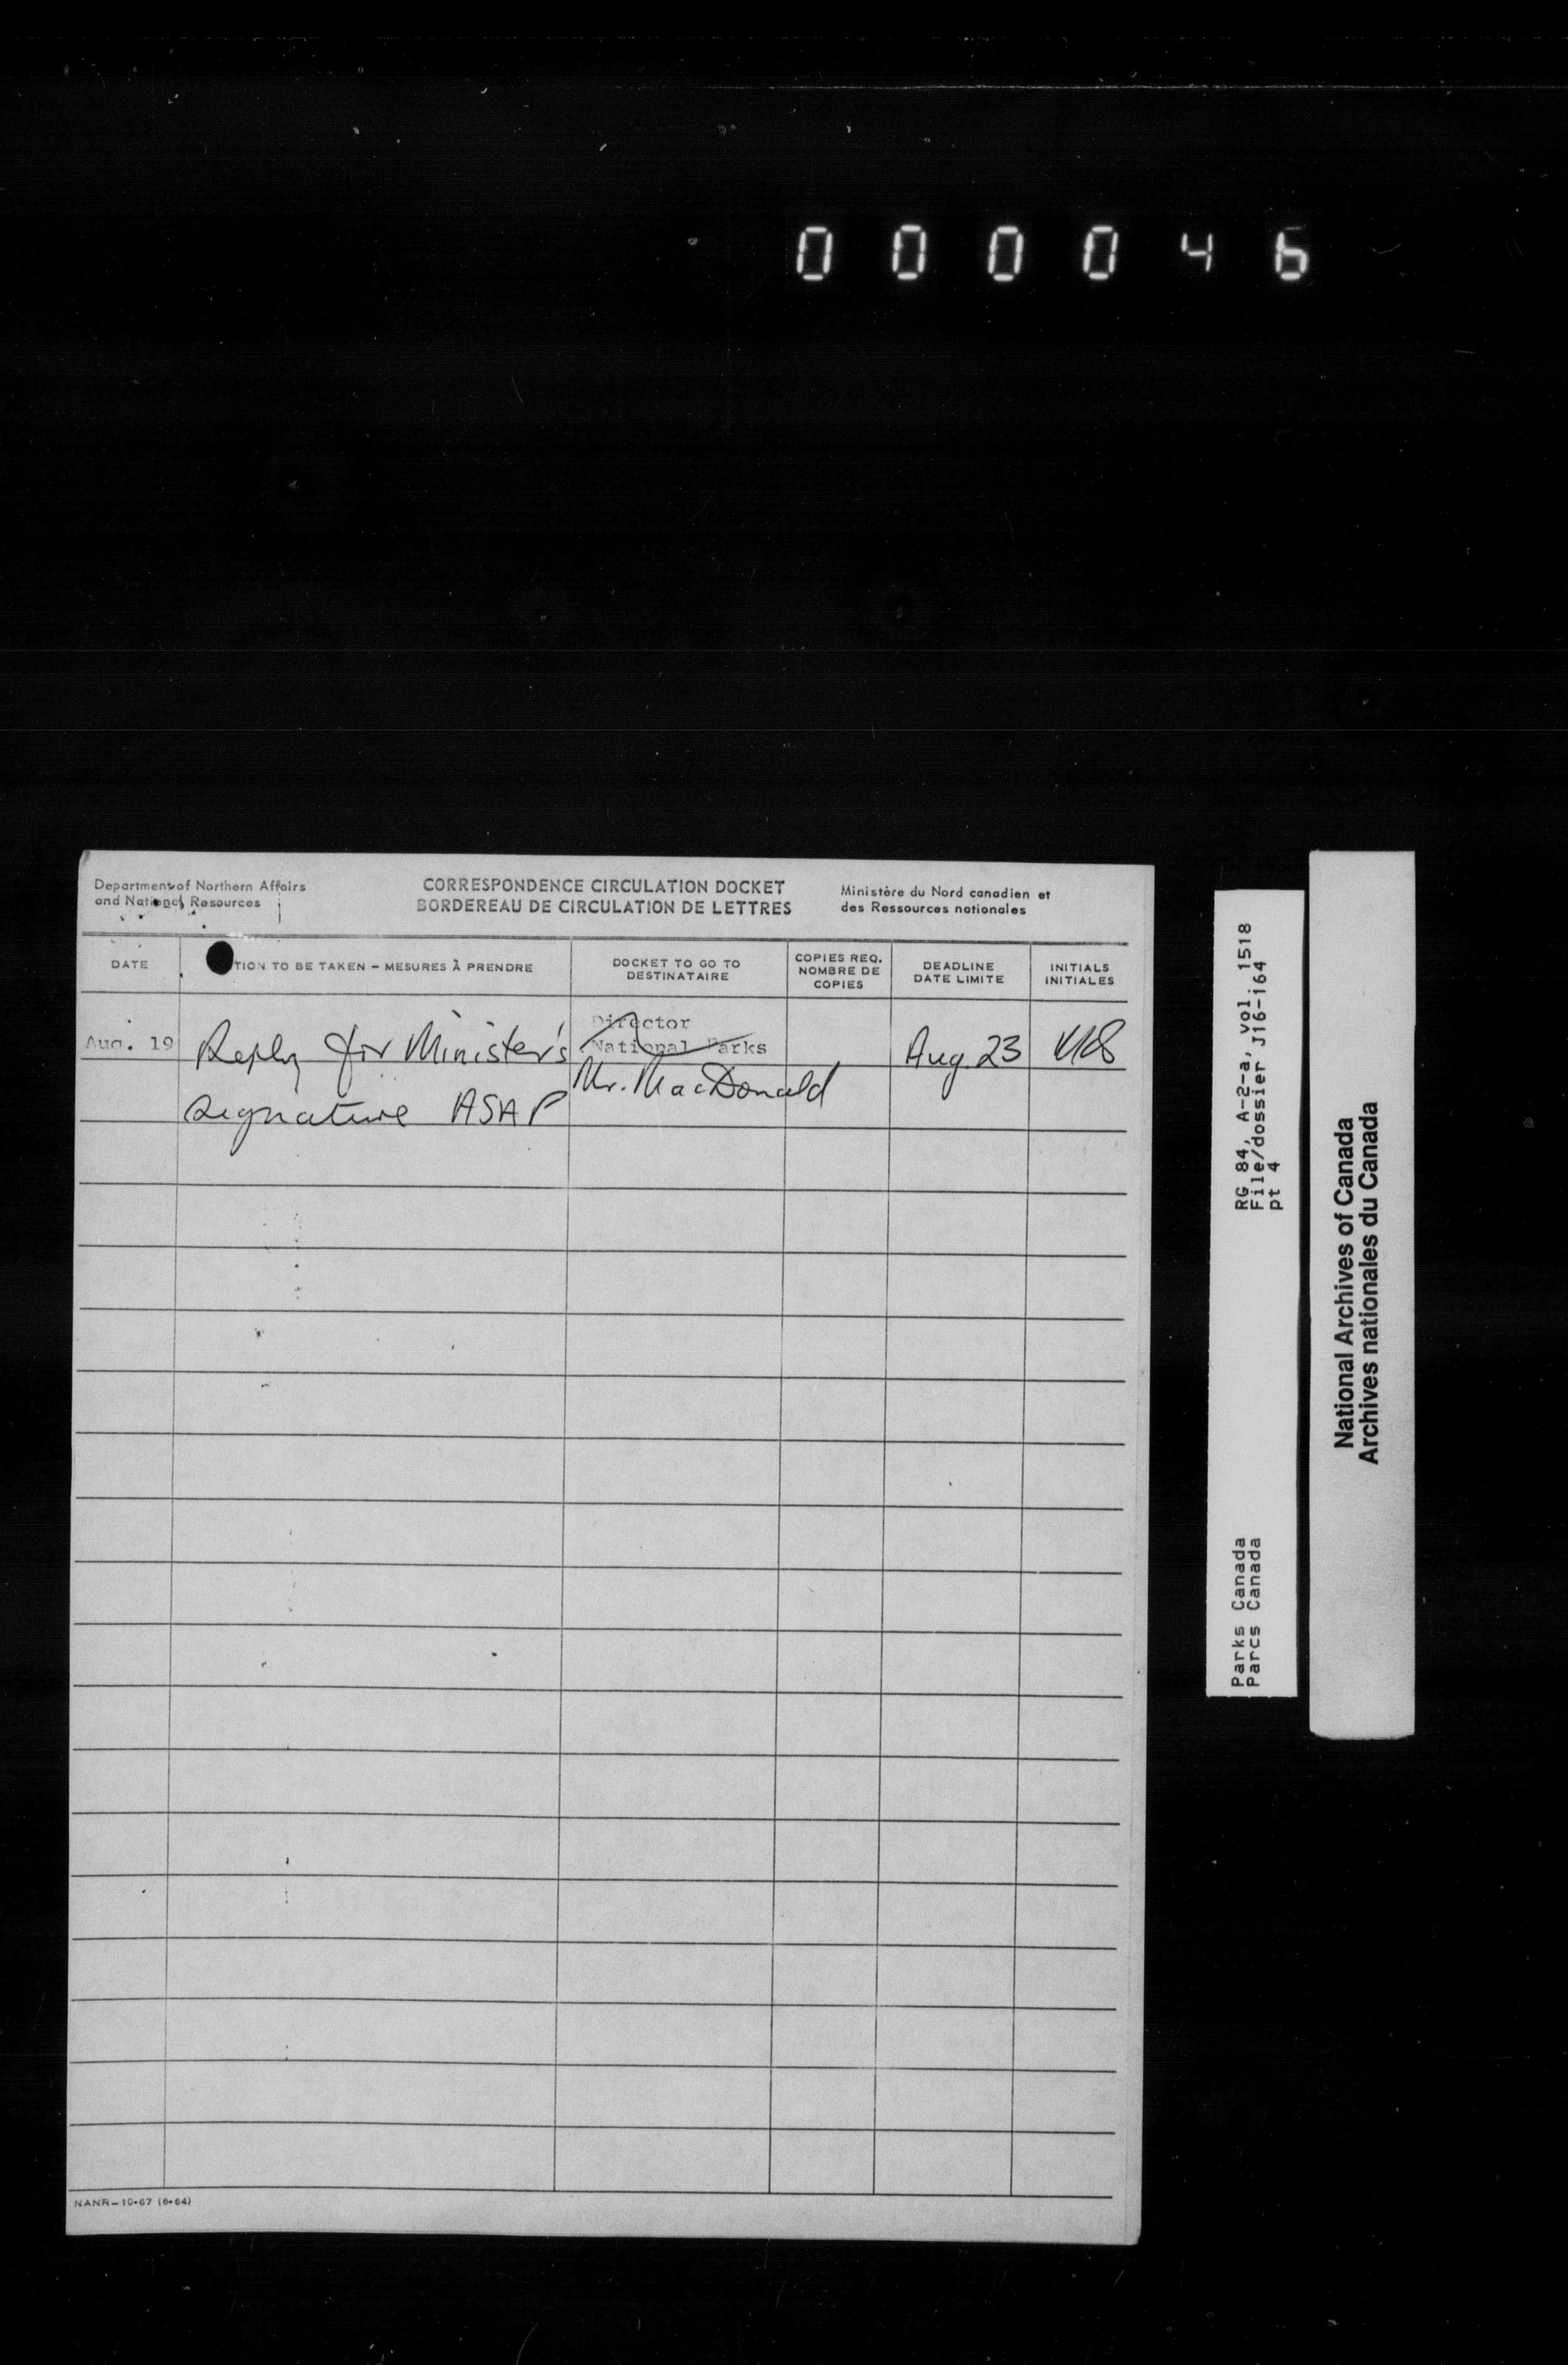 000046
Department of Northern Affairs
and National Resources
CORRESPONDENCE CIRCULATION DOCKET
BORDEREAU DE CIRCULATION DE LETTRES
Ministère du Nord canadien et
des Ressources nationales
DATE
TION TO BE TAKEN – MESURES À PRENDRE
DOCKET TO GO TO
DESTINATAIRE
COPIES REQ.
NOMBRE DE
COPIES
DEADLINE
DATE LIMITE
INITIALS
INITIALES
Aug. 19
Reply for Minister's
signature ASAP
Director
National Parks
Mr. MacDonald
Aug. 23
NANR–10-67 (6-64)
RG 84, A-2-a, vol. 1518
File/dossier J16-164
pt 4
Parks Canada
Parcs Canada
National Archives of Canada
Archives nationales du Canada